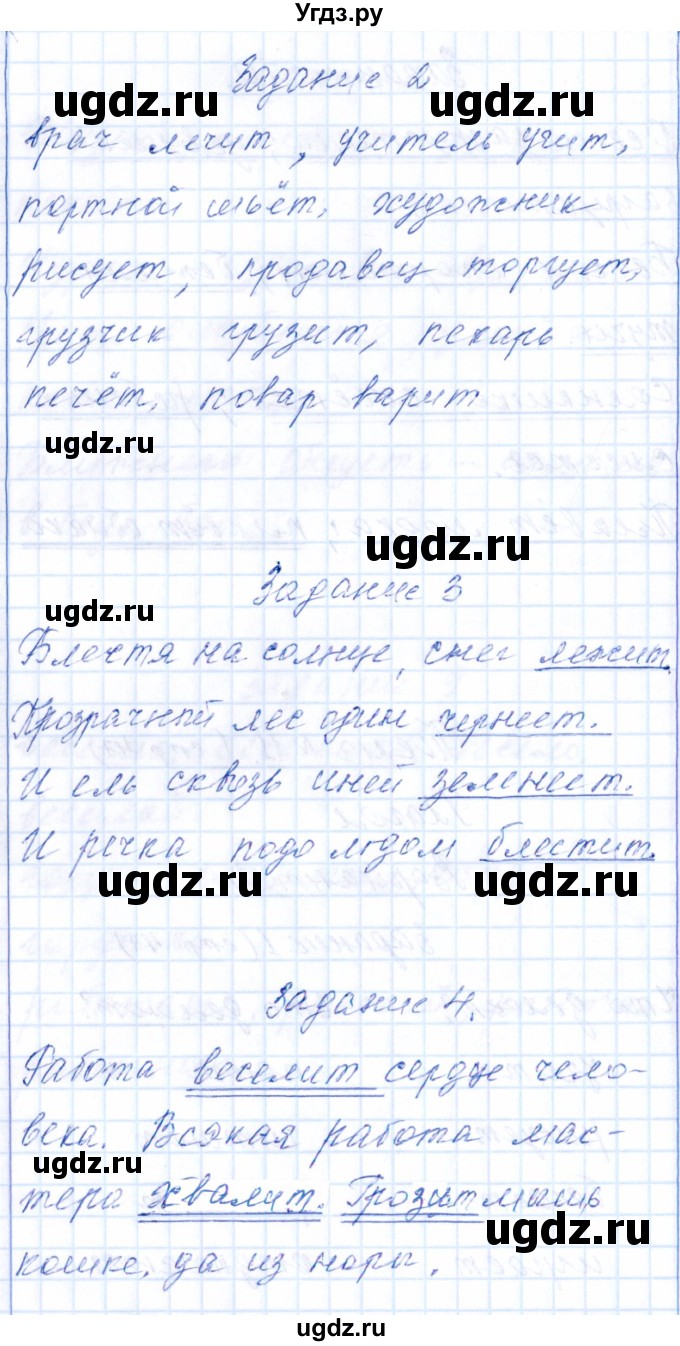 Угдз.ру
Задание 2
ugdz.ru ugdz.ru
врач лечит, учитель учит,
портной шьёт, художник
рисует, продавец торгует,
грузчик грузит, пекарь
печёт, повар варит
ugdz.ru
ugdz.ru
Задание 3
ugdz.ru
Блестя на солнце, снег лежит.
Прозрачный лес один чернеет.
И ель сквозь иней зеленеет.
И речка подо льдом блестит.
ugdz.ru ugdz.ru
Задание 4.
Работа веселит сердце чело-
века. Всякая работа мас-
ugdz.ru
тера хвалит. Грозит мышь
ugdz.ru
кошке, да из норы.
ugdz.ru